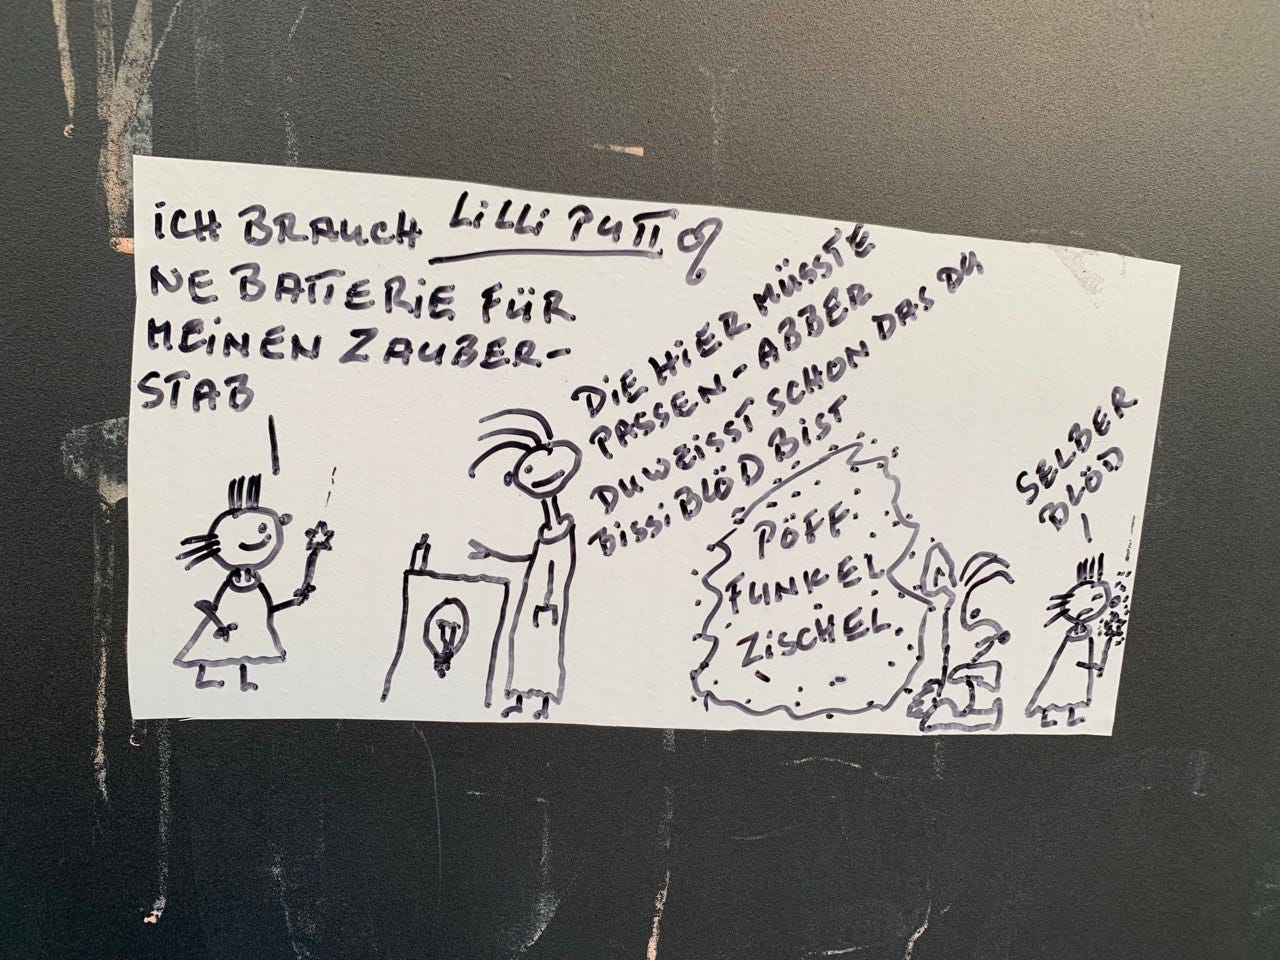 LiLLi PUTT
iCH BRAUCH
NE BATTERiE FÜR
MEiNEN ZAUBER-
STAB
DiE HiER MÜSSTE
PASSEN - ABBER
DU WEISST SCHON DAS DU
BiSSi BLÖD BiST
PÖFF.
FUNKEL
ZiSCHEL.
SELBER
BLÖD